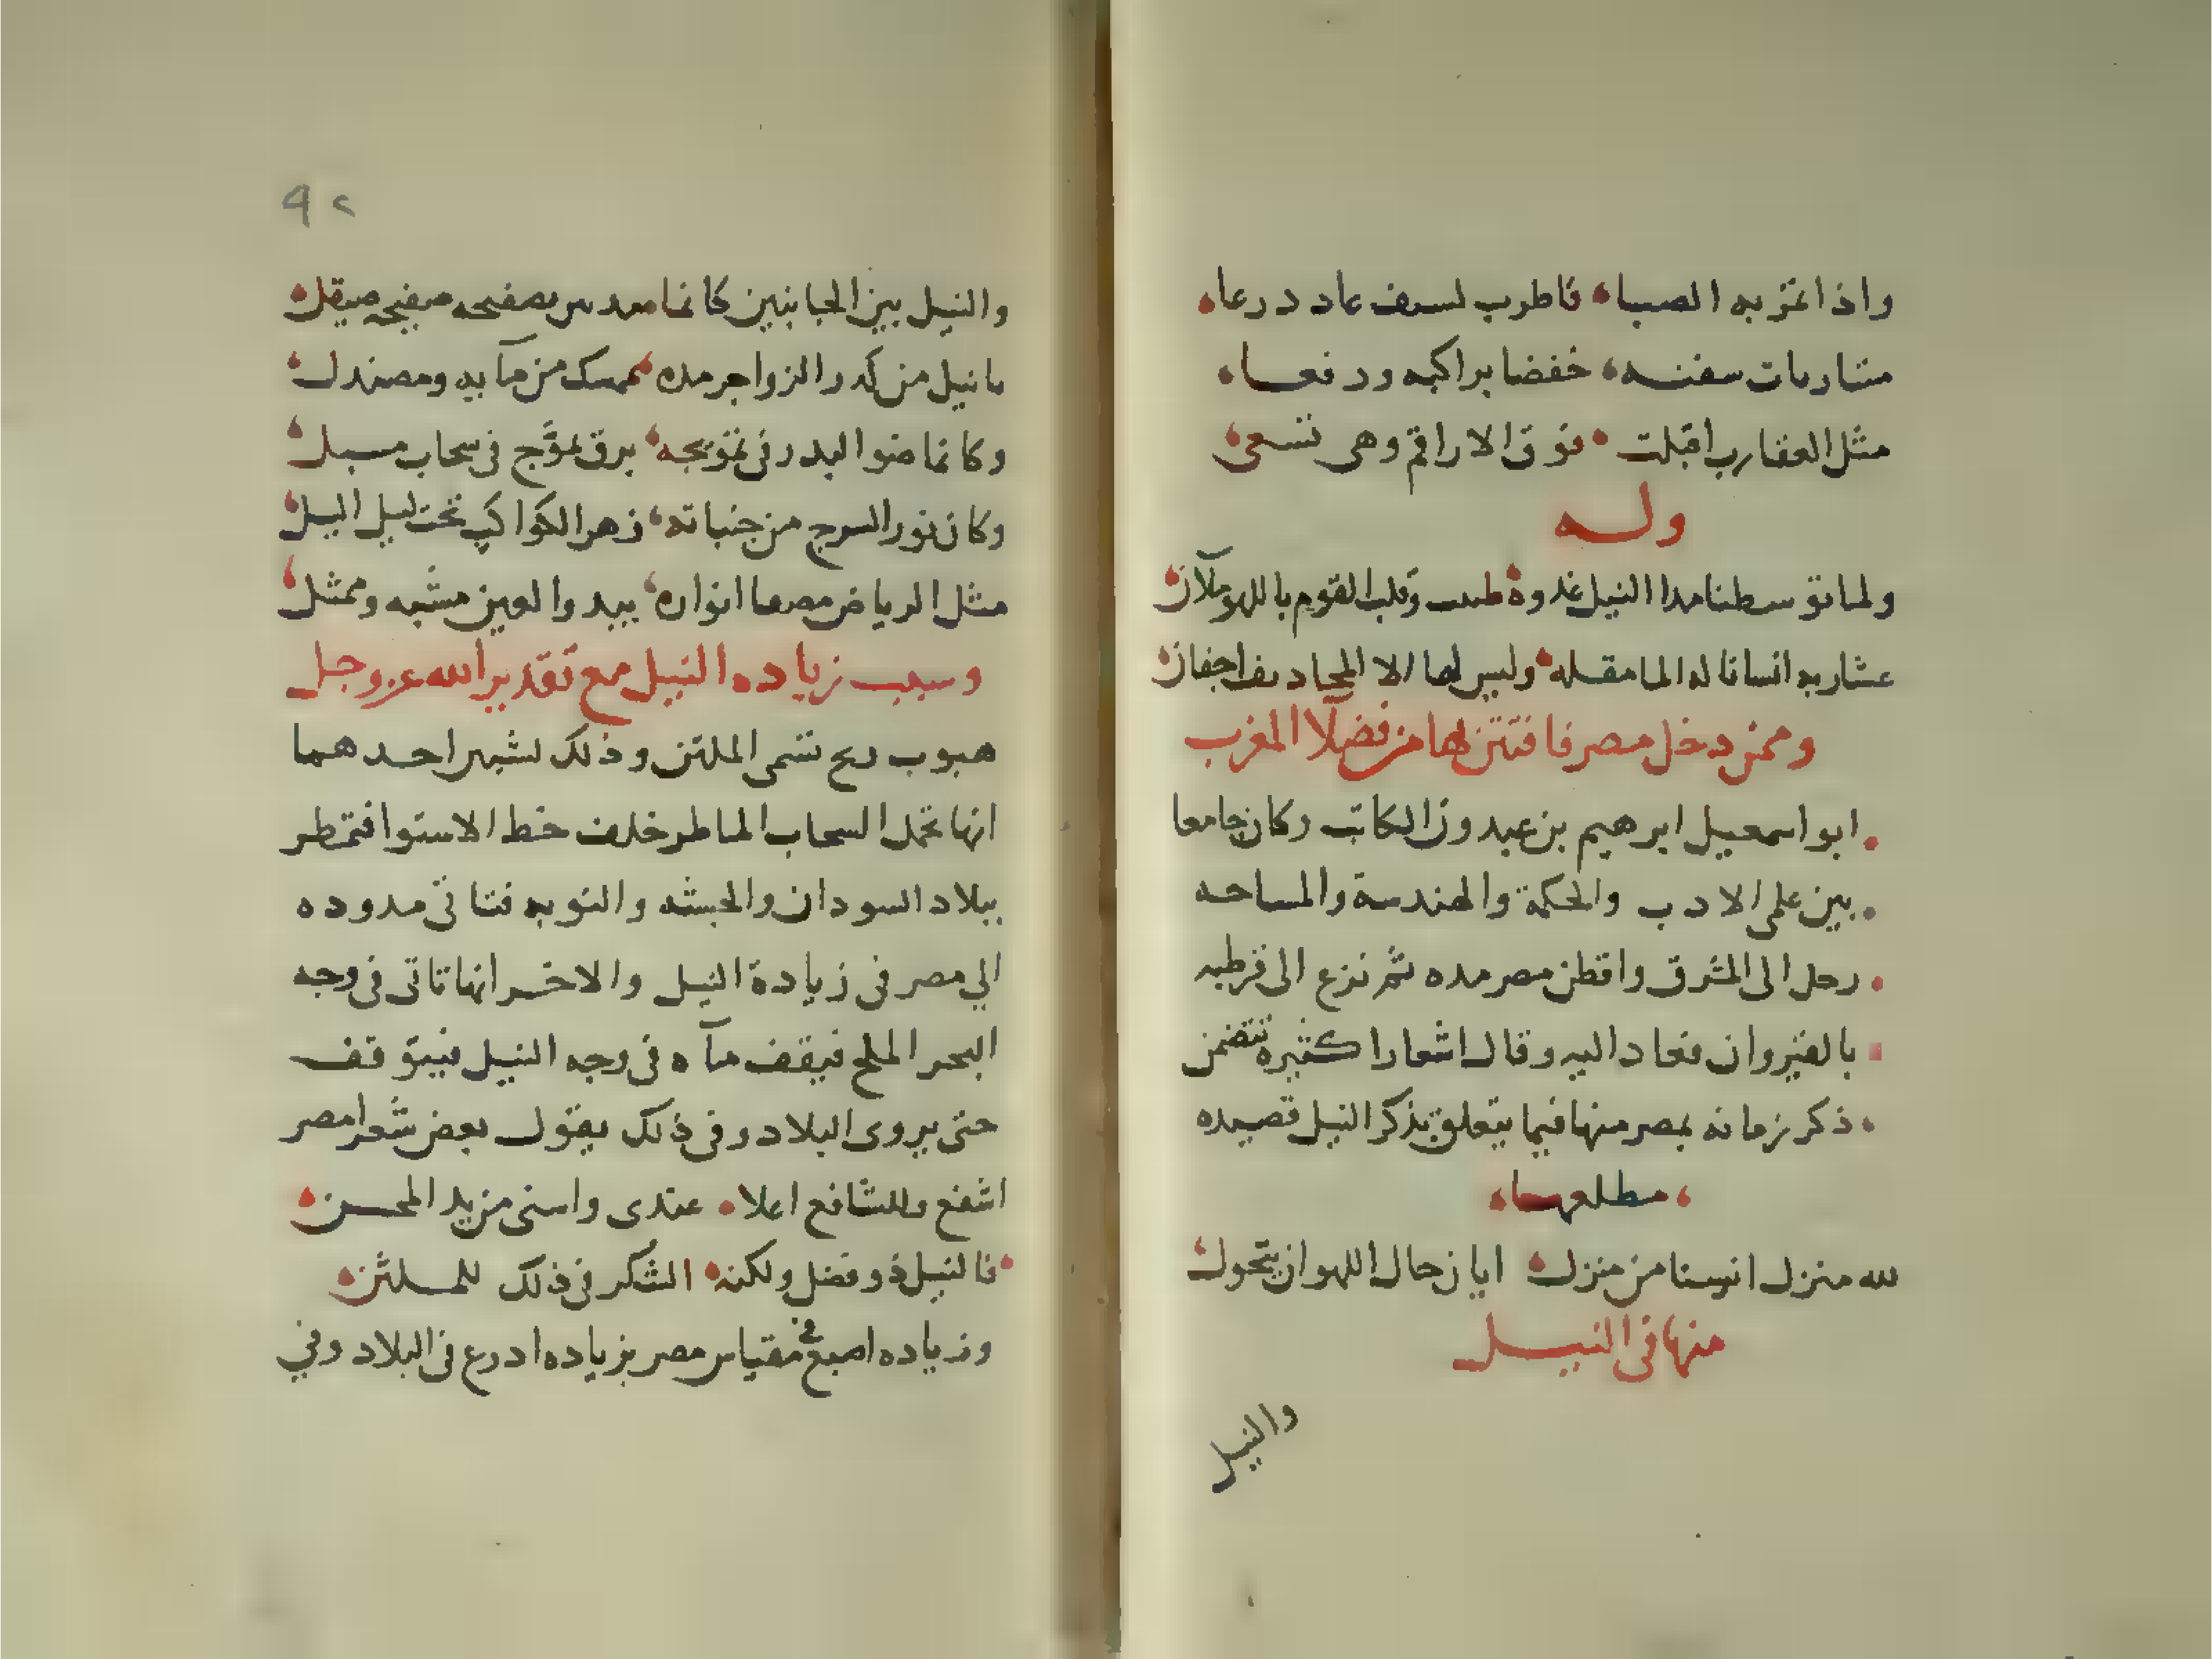 واذا اعتر به الصبا فاطرب لسيف عاد درعا
متباريات سفنه خفضا براكبه ورفعا
مثل العقارب اقبلت فوق الاراقم وهي تسعى
وله
ولما توسطنا مدا النيل غدوة وقلب القوم باللهو ملآن
عشاريه انسانا له الما مقله وليس لها الا المجاديف اجفان
وممن دخل مصر فافتتن بها من فضلا المغرب
ابو اسمعيل ابرهيم بن عبدون الكاتب وكان جامعا
بين علمي الادب والحكمة والهندسة والمساحه
رحل الى المشرق واقطن مصر مده ثم نزع الى قرطبه
بالقيروان فعاد اليه وقال اشعارا كثيره تتضمن
ذكر زمانه بمصر منها فيما يتعلق بذكر النيل قصيده
مطلعها
لله منزل انسنا من منزل ايا زحال اللهو ان يتحول
منها في النيل
والنيل
٩٢
والنيل بين الجانبين كانما بصفيحه صفيحه صيقل
يا نيل من كدر الزواجر مده بممسك من مآيه ومصندل
وكانما ضوا البدر في تمويجه برق تموّج في سحاب مسبل
وكان نور السرج من جنباته زهر الكواكب تحت ليل اليل
مثل الرياض انواره يبدوا لعين مشبه وممثل
وسبب زياده النيل مع تقدير الله عز وجل
هبوب ريح تسمى الملتن وذلك لشيين احدهما
انها تحمل السحاب الماطر خلف خط الاستوا فتمطر
ببلاد السودان والحبشه والنوبه فتاتي مدوده
الي مصر في زيادة النيل والاخر انها تاتي في وجه
البحر الملح فيقف مآه في وجه النيل فيتوقف
حتى يروى البلاد وفي ذلك يقول بعض شعرا مصر
اشفع وللشافع اعلا عندى واسنى من يد المحسن
فالنيل ذو فضل ولكنه الشكر في ذلك للملثن
وزياده اصبع في مقياس مصر بزياده ادرع في البلاد وفي